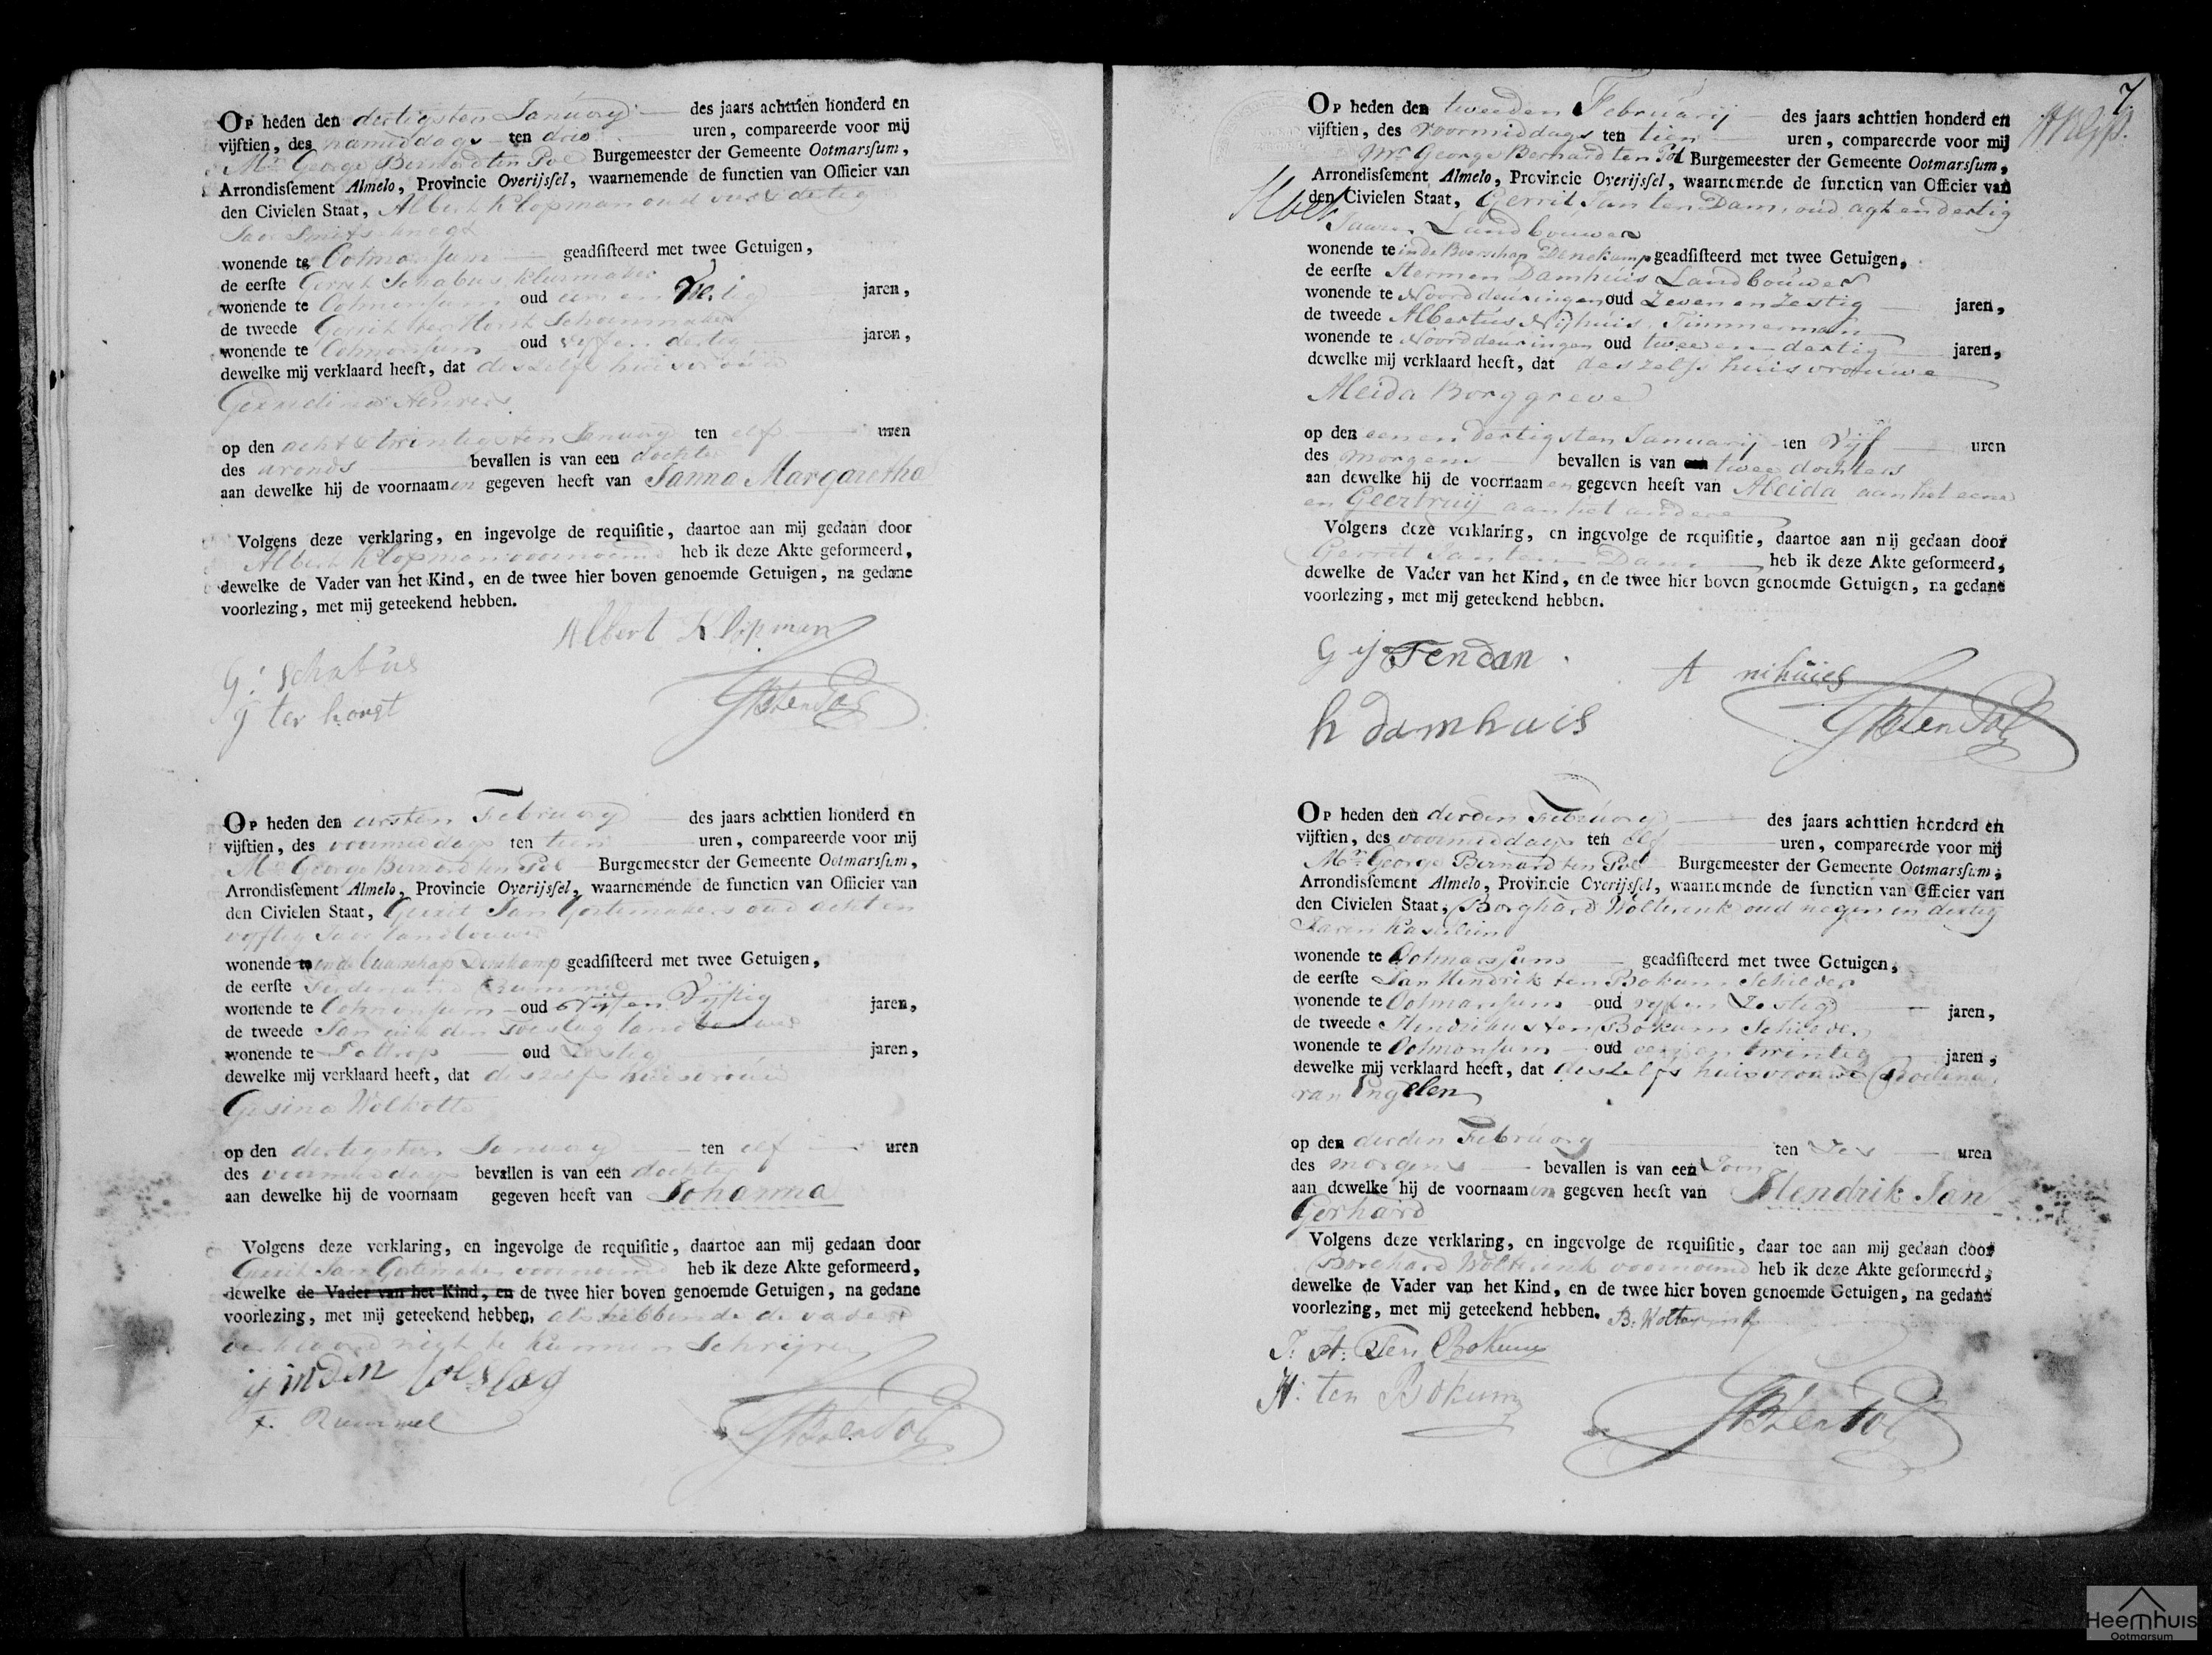 Op heden den dertigsten January des jaars achttien honderd en
vijftien, des namiddags ten drie uren, compareerde voor mij
Mr. George Bernard ten Pol Burgemeester der Gemeente Ootmarsſum,
Arrondisſement Almelo, Provincie Overijsſel, waarnemende de functien van Officier van
den Civielen Staat, Albert Klopman oud
wonende te Ootmarsum geadſiſteerd met twee Getuigen,
de eerſte Gerrit Schabus
wonende te Ootmarsum oud een en jaren,
de tweede Gerrit ter Horst Schoenmaker
wonende te Ootmarsum oud vyf en dertig jaren,
dewelke mij verklaard heeft, dat deszelfs huisvrouw
Gerradina
op den acht & twintigsten January ten elf uren
des avonds bevallen is van een dochter
aan dewelke hij de voornaamen gegeven heeft van Janna Margaretha
Volgens deze verklaring, en ingevolge de requiſitie, daartoe aan mij gedaan door
Albert Klopman voornoemd heb ik deze Akte geformeerd,
dewelke de Vader van het Kind, en de twee hier boven genoemde Getuigen, na gedane
voorlezing, met mij geteekend hebben.
Albert Klopman
G: Schabus
G ter horst
GBtenPol
Op heden den eersten February des jaars achttien honderd en
vijftien, des voormiddags ten tien uren, compareerde voor mij
Mr. George Bernard ten Pol Burgemeester der Gemeente Ootmarsſum,
Arrondisſement Almelo, Provincie Overijsſel, waarnemende de functien van Officier van
den Civielen Staat, Gerrit Jan Gortemaker oud acht en
vyftig Jaar landbouwer
wonende in de buurschap Denekamp geadſiſteerd met twee Getuigen,
de eerſte Ferdenand Rummel
wonende te Ootmarsum oud vyf en Vyftig jaren,
de tweede Jan in den Toeslag landbouwer
wonende te Tottrop oud Zestig jaren,
dewelke mij verklaard heeft, dat deszelfs huisvrouw
Gesina Wolkotte
op den dertigsten January ten elf uren
des voormiddags bevallen is van een dochter
aan dewelke hij de voornaam gegeven heeft van Johanna
Volgens deze verklaring, en ingevolge de requiſitie, daartoe aan mij gedaan door
Gerrit Jan Gortemaker voornoemd heb ik deze Akte geformeerd,
dewelke de Vader van het Kind, en de twee hier boven genoemde Getuigen, na gedane
voorlezing, met mij geteekend hebben, als hebbende de vader
verklaard nigt te kunnen Schrijven
ij inden toeslag
F. Rummel
GBtenPol
7
Op heden den tweeden Februarij des jaars achttien honderd en
vijftien, des voormiddags ten tien uren, compareerde voor mij
Mr George Bernard ten Pol Burgemeester der Gemeente Ootmarsſum,
Arrondisſement Almelo, Provincie Overijsſel, waarnemende de functien van Officier van
den Civielen Staat, Gerrit Jan ten Dam, oud agt en dertig
Jaaren Landbouwer
wonende te in de Boerschap Denekamp geadſiſteerd met twee Getuigen,
de eerſte Hermen Damhuis Landbouwer
wonende te Noorddeuringen oud Zeven en Zestig jaren,
de tweede Albertus Nijhuis Timmerman
wonende te Noorddeuringen oud twee en dertig jaren,
dewelke mij verklaard heeft, dat deszelfs huisvrouwe
Aleida Borggreve
op den een en dertigsten Januarij ten Vijf uren
des morgens bevallen is van een twee dochters
aan dewelke hij de voornaamen gegeven heeft van Aleida aan het eene
en Geertruij aan het andere
Volgens deze verklaring, en ingevolge de requiſitie, daartoe aan mij gedaan door
Gerrit Jan ten Dam heb ik deze Akte geformeerd,
dewelke de Vader van het Kind, en de twee hier boven genoemde Getuigen, na gedane
voorlezing, met mij geteekend hebben.
G ij Tendan
A nihuies
h damhuis
GBtenPol
Op heden den derden February des jaars achttien honderd en
vijftien, des voormiddags ten elf uren, compareerde voor mij
Mr. George Bernard ten Pol Burgemeester der Gemeente Ootmarsſum,
Arrondisſement Almelo, Provincie Overijsſel, waarnemende de functien van Officier van
den Civielen Staat, Borghard Wolterink oud negen en dertig
Jaren Kastelein
wonende te Ootmarssum geadſiſteerd met twee Getuigen,
de eerſte Jan Hendrik ten Bokum Schilder
wonende te Ootmarssum oud vyf en Zestig jaren,
de tweede Hendrikus ten Bokum Schilder
wonende te Ootmarsum oud een en twintig jaren,
dewelke mij verklaard heeft, dat deszelfs huisvrouwe
van Engelen
op den derden February ten Zes uren
des morgens bevallen is van een Zoon
aan dewelke hij de voornaamen gegeven heeft van Hendrik Jan
Gerhard
Volgens deze verklaring, en ingevolge de requiſitie, daar toe aan mij gedaan door
Borghard Wolterink voornoemd heb ik deze Akte geformeerd,
dewelke de Vader van het Kind, en de twee hier boven genoemde Getuigen, na gedane
voorlezing, met mij geteekend hebben. B: Wolterink
J: H: Ten Bokum
H: ten Bokum
GBtenPol
Heemhuis
Ootmarsum